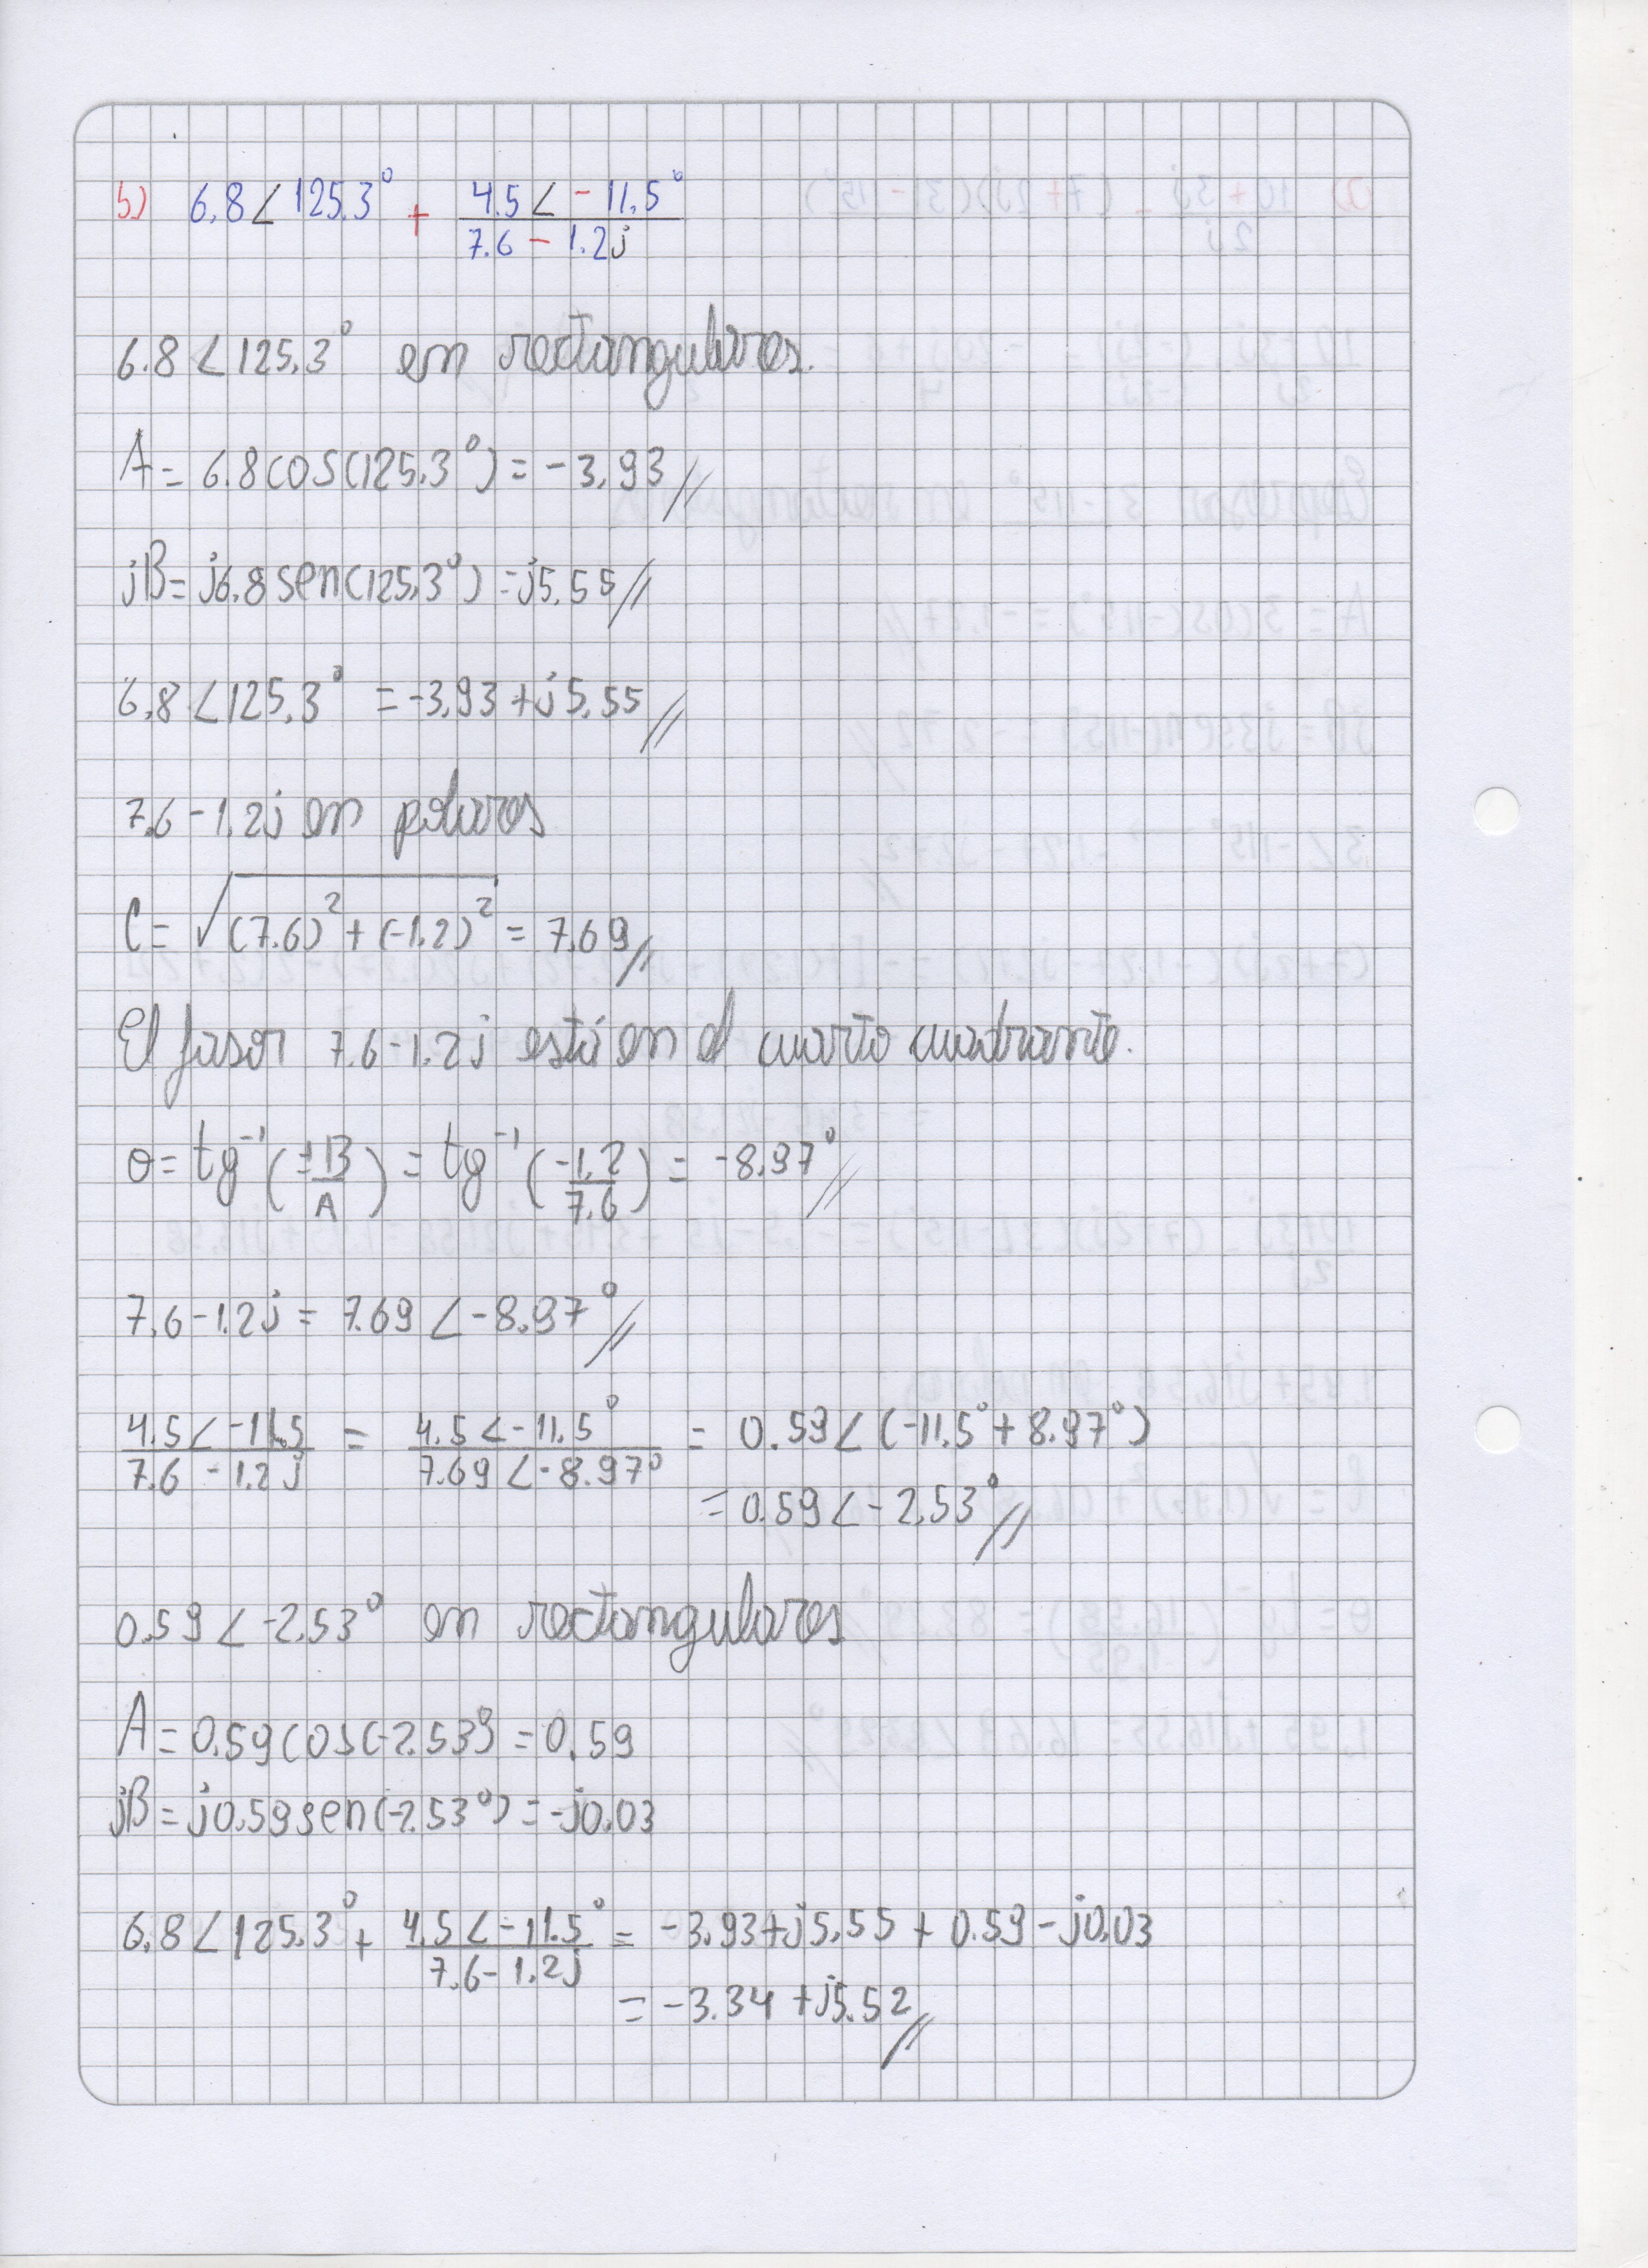 b) 6.8∠125.3° + 4.5∠-11.5° / 7.6 - 1.2j
6.8∠125.3° en rectangulares.
A = 6.8cos(125.3°) = -3.93//
jB = j6.8sen(125.3°) = j5.55//
6.8∠125.3° = -3.93+j5.55//
7.6-1.2j en polares
C = √(7.6)²+(-1.2)² = 7.69//
El fasor 7.6-1.2j está en el cuarto cuadrante.
θ = tg⁻¹(±B/A) = tg⁻¹(-1.2/7.6) = -8.97°//
7.6-1.2j = 7.69∠-8.97°//
4.5∠-11.5 / 7.6-1.2j = 4.5∠-11.5° / 7.69∠-8.97° = 0.59∠(-11.5°+8.97°)
= 0.59∠-2.53°//
0.59∠-2.53° en rectangulares
A = 0.59cos(-2.53°) = 0.59
jB = j0.59sen(-2.53°) = -j0.03
6.8∠125.3° + 4.5∠-11.5° / 7.6-1.2j = -3.93+j5.55 + 0.59-j0.03
= -3.34+j5.52//